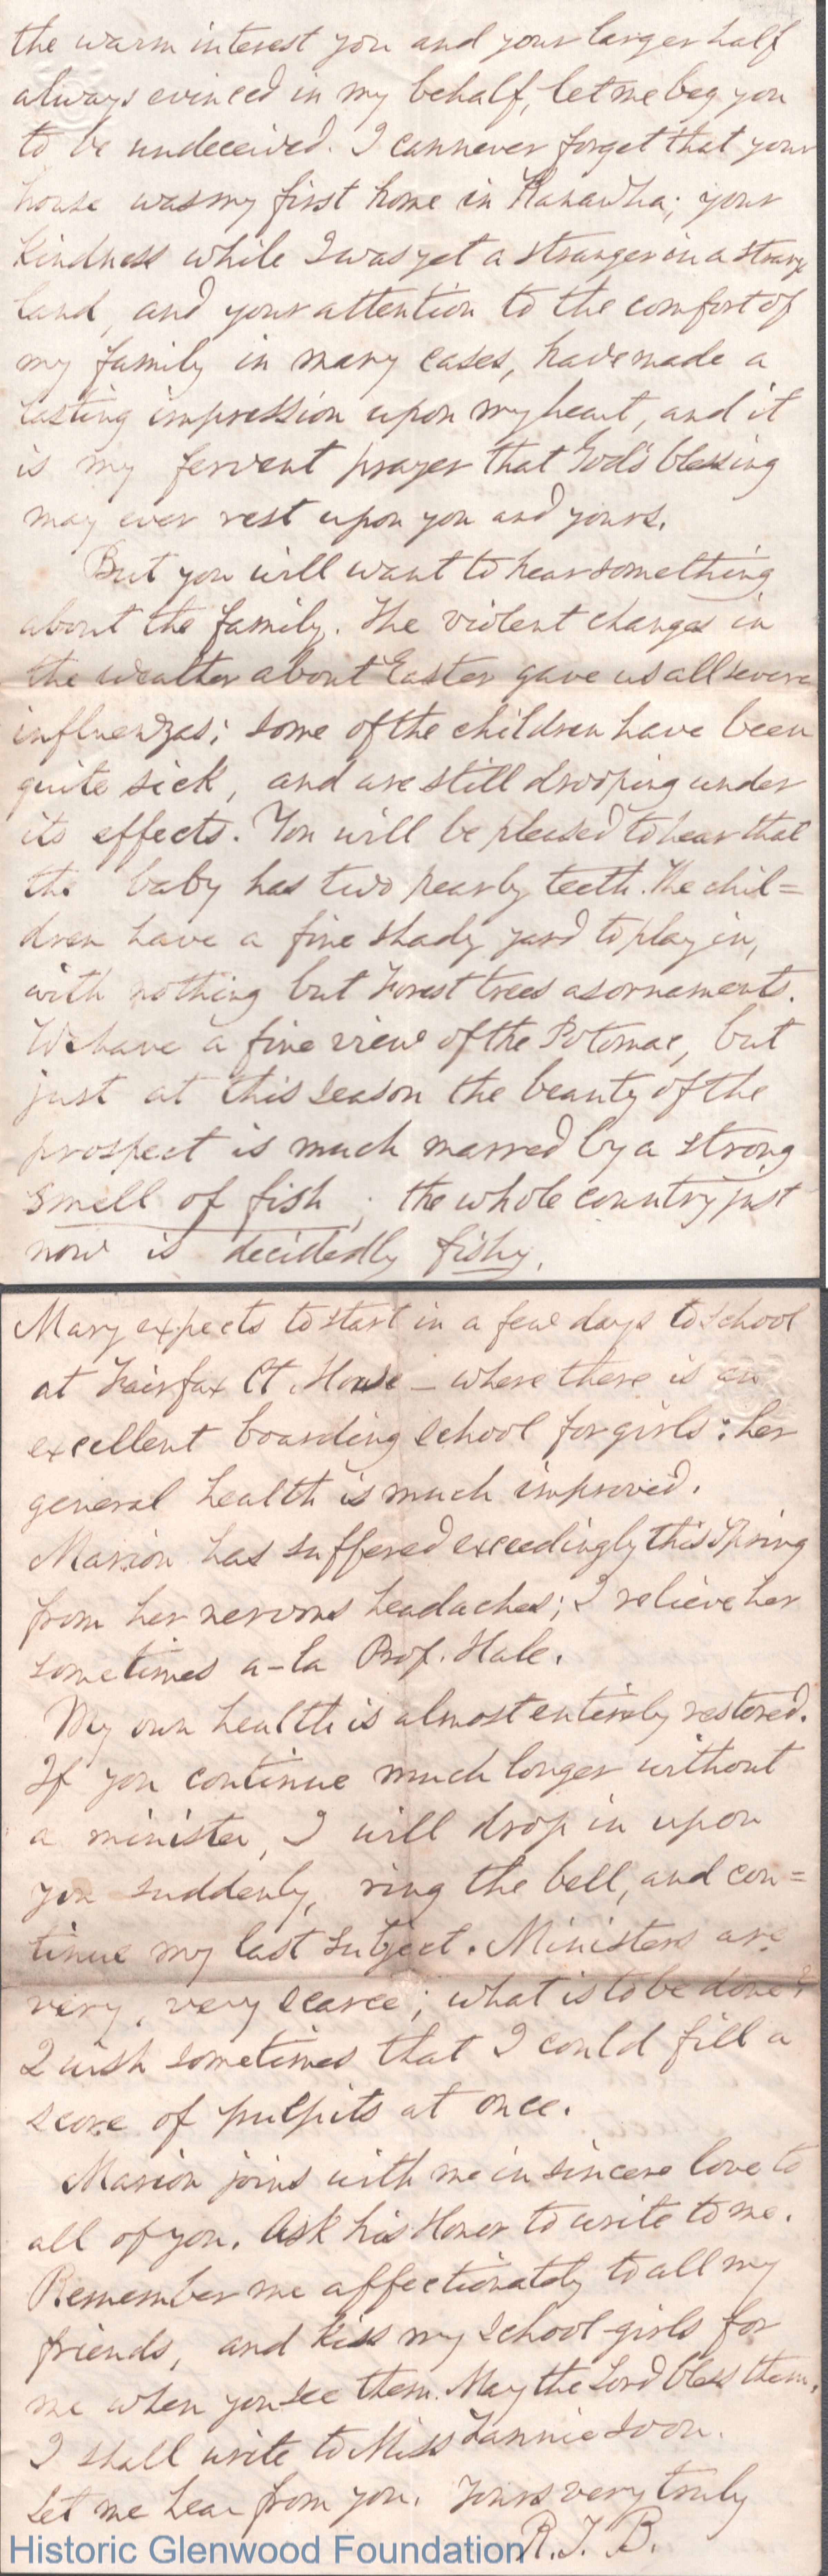 the warm interest you and your larger half
always evinced in my behalf, let me beg you
to be undeceived. I can never forget that your
house was my first home in Kanawha; your
kindness while I was yet a stranger in a strange
land, and your attention to the comfort of
my family in many cases, have made a
lasting impression upon my heart, and it
is my fervent prayer that God's blessing
may ever rest upon you and yours.
But you will want to hear something
about the family. The violent changes in
the weather about Easter gave us all severe
influenzas; some of the children have been
quite sick, and are still drooping under
its effects. You will be pleased to hear that
the baby has two pearly teeth. The chil=
dren have a fine shady yard to play in,
with nothing but Forest trees as ornaments.
We have a fine view of the Potomac, but
just at this season the beauty of the
prospect is much marred by a strong
smell of fish; the whole country just
now is decidedly fishy.
Mary expects to start in a few days to school
at Fairfax Ct. House - where there is an
excellent boarding school for girls: her
general health is much improved.
Marion has suffered exceedingly this Spring
from her nervous headaches; I relieve her
sometimes a-la Prof. Hale.
My own health is almost entirely restored.
If you continue much longer without
a minister, I will drop in upon
you suddenly, ring the bell, and con=
tinue my last subject. Ministers are
very, very scarce; what is to be done?
I wish sometimes that I could fill a
score of pulpits at once.
Marion joins with me in sincere love to
all of you. Ask his Honor to write to me.
Remember me affectionately to all my
friends, and kiss my school-girls for
me when you see them. May the Lord bless them.
I shall write to Miss Fannie soon.
Let me hear from you. Yours very truly
R. T. B.
Historic Glenwood Foundation